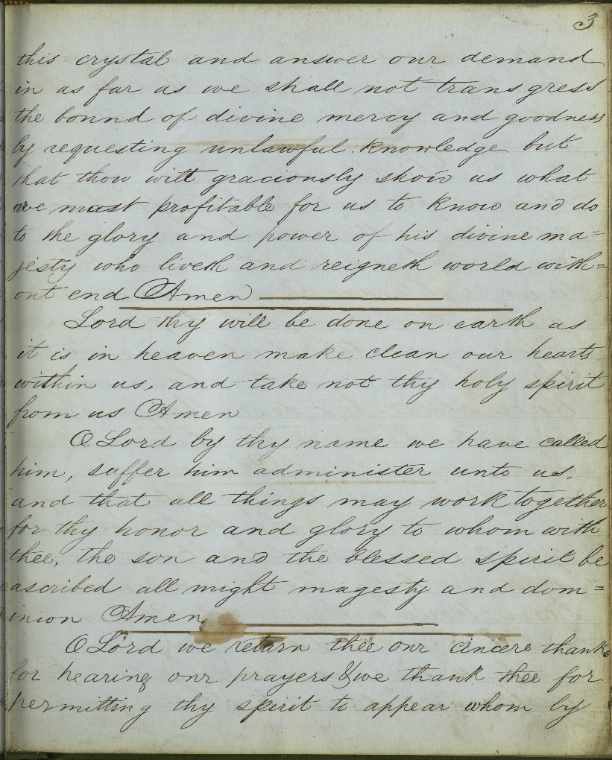 3
this crystal and answer our demand
in as far as we shall not transgress
the bound of divine mercy and goodness
by requesting unlawful knowledge but
that thow will graciously show us what
we must profitable for us to know and do
to the glory and power of his divine ma=
jesty who liveth and reigneth world with=
out end Amen
Lord thy will be done on earth as
it is in heaven make clean our hearts
within us, and take not thy holy spirit
from us Amen
O Lord by thy name we have called
him, suffer him administer unto us.
and that all things may work together
for thy honor and glory to whom with
thee, the son and the blessed spirit be
ascribed all might magesty and dom=
inion Amen
O Lord we return thee our cincere thanks
for hearing our prayers & we thank thee for
permitting thy spirit to appear whom by